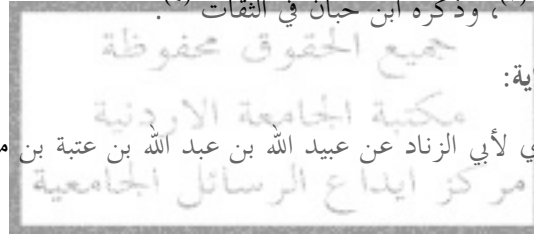 ، وذكره ابن حبان في الثقات
جميع الحقوق محفوظة
ية:
مكتبة الجامعة الاردنية
ي لأبي الزناد عن عبيد الله بن عبد الله بن عتبة بن م
مركز ايداع الرسائل الجامعية